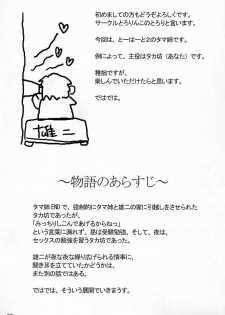 初めましての方もどうぞよろしく。
サークルとろりんこのとろりと言います。
今回は、とーはーと2のタマ姉です。
例によって、主役はタカ坊（あなた）です。
稚拙ですが、
楽しんでいただけたらと思います。
ではでは。
雄二
～物語のあらすじ～
タマ姉ENDで、強制的にタマ姉と雄二の家に引越しをさせられた
タカ坊であったが、
「みっちりしこんであげるからねっ」
という言葉に漏れず、昼は受験勉強、そして、夜は、
セックスの勉強を習うタカ坊であった。
雄二が夜な夜な繰り広げられる情事に、
聞き耳を立てていたかどうかは、
また別の話ではある。
ではでは、そういう展開でいきまうす。